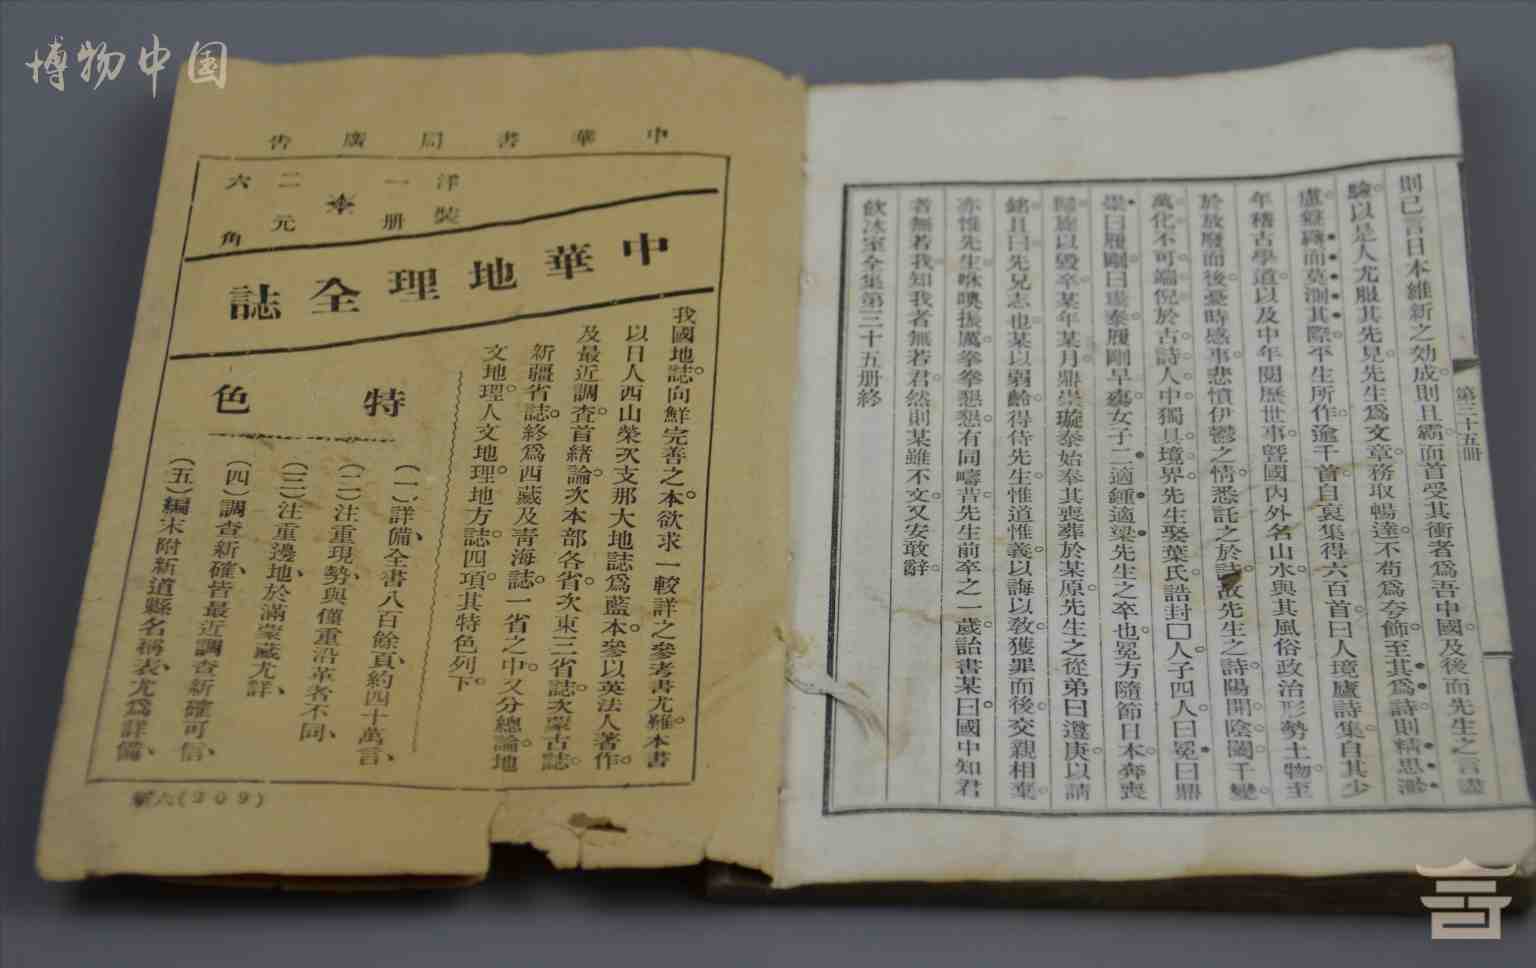 博物中国
第三十五冊
則已言日本維新之効成。則且霸。而首受其衝者爲吾中國。及後而先生之言盡
驗。以是人尤服其先見。先生爲文章。務取暢達。不苟爲夸飾。至其爲詩。則精思渺
慮。凝礴而莫測其際。平生所作逾千首。自裒集得六百首。曰人境廬詩集。自其少
年稽古學道。以及中年閱歷世事。暨國內外名山水。與其風俗政治形勢土物。至
於放廢而後。憂時感事。悲憤伊鬱之情。悉託之於詩。故先生之詩。陽開陰闔。千變
萬化。不可端倪。於古詩人中獨具境界。先生娶葉氏。誥封□人。子四人。曰冕。曰鼎
崇。曰履剛。曰璇泰。履剛早殤。女子二。適鍾。適梁。先生之卒也。冕方隨節日本。奔喪
歸。旋以毀卒。某年某月。鼎崇璇泰始奉其喪葬於某原。先生之從弟曰遵庚。以請
銘。且曰。先兄志也。某以弱齡得侍先生。惟道惟義。以誨以敎。獲罪而後。交親相棄。
亦惟先生。咻噢振厲。拳拳懇懇。有同疇昔。先生前卒之一歲。詒書某曰。國中知君
者無若我。知我者無若君。然則某雖不文。又安敢辭。
飲冰室全集第三十五册終
中華書局廣告
洋裝一册
二元六角
中華地理全誌
我國地誌。向鮮完善之本。欲求一較詳之參考書尤難。本書
以日人西山榮次支那大地誌爲藍本。參以英法人著作。
及最近調查。首緒論。次本部各省。次東三省誌。次蒙古誌。
新疆省誌。終爲西藏及青海誌。一省之中。又分總論。地
文地理。人文地理。地方誌。四項。其特色列下。
特色
(一)詳備、全書八百餘頁、約四十萬言、
(二)注重現勢、與僅重沿革者不同、
(三)注重邊地、於滿蒙藏尤詳、
(四)調查新確、皆最近調查新確可信、
(五)編末附新道縣名稱表、尤爲詳備、
(209)